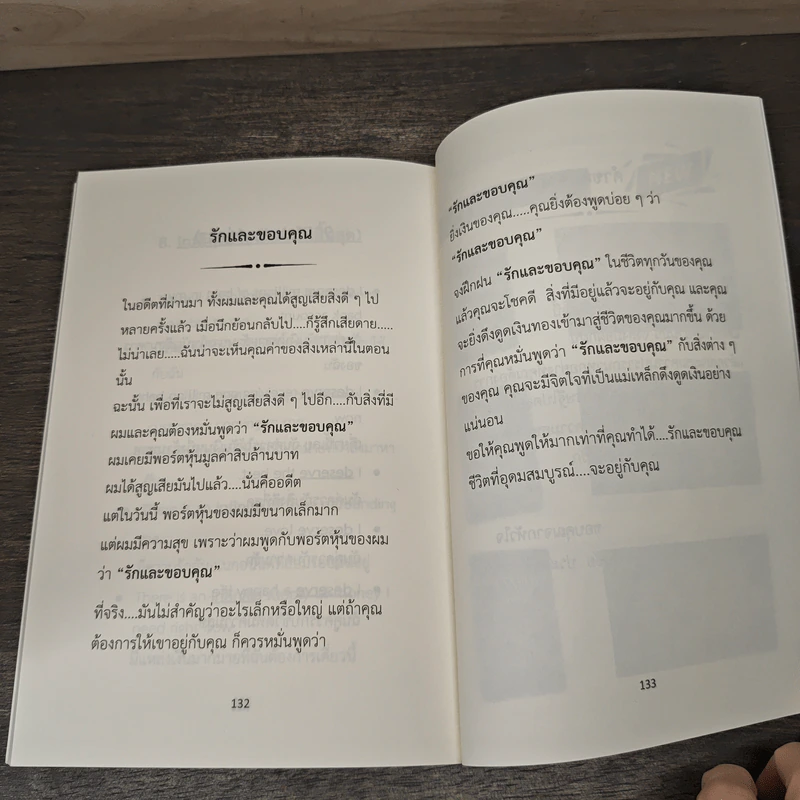 รักและขอบคุณ
ในอดีตที่ผ่านมา ทั้งผมและคุณได้สูญเสียสิ่งดี ๆ ไป
หลายครั้งแล้ว เมื่อนึกย้อนกลับไป....ก็รู้สึกเสียดาย.....
ไม่น่าเลย.....ฉันน่าจะเห็นคุณค่าของสิ่งเหล่านี้ในตอน
นั้น
ฉะนั้น เพื่อที่เราจะไม่สูญเสียสิ่งดี ๆ ไปอีก....กับสิ่งที่มี
ผมและคุณต้องหมั่นพูดว่า “รักและขอบคุณ”
ผมเคยมีพอร์ตหุ้นมูลค่าสิบล้านบาท
ผมได้สูญเสียมันไปแล้ว....นั่นคืออดีต
แต่ในวันนี้ พอร์ตหุ้นของผมมีขนาดเล็กมาก
แต่ผมมีความสุข เพราะว่าผมพูดกับพอร์ตหุ้นของผม
ว่า “รักและขอบคุณ”
ที่จริง....มันไม่สำคัญว่าอะไรเล็กหรือใหญ่ แต่ถ้าคุณ
ต้องการให้เขาอยู่กับคุณ ก็ควรหมั่นพูดว่า
132
“รักและขอบคุณ”
ยิ่งเงินของคุณ.....คุณยิ่งต้องพูดบ่อย ๆ ว่า
“รักและขอบคุณ”
จงฝึกฝน “รักและขอบคุณ” ในชีวิตทุกวันของคุณ
แล้วคุณจะโชคดี สิ่งที่มีอยู่แล้วจะอยู่กับคุณ และคุณ
จะยิ่งดึงดูดเงินทองเข้ามาสู่ชีวิตของคุณมากขึ้น ด้วย
การที่คุณหมั่นพูดว่า “รักและขอบคุณ” กับสิ่งต่าง ๆ
ของคุณ คุณจะมีจิตใจที่เป็นแม่เหล็กดึงดูดเงินอย่าง
แน่นอน
ขอให้คุณพูดให้มากเท่าที่คุณทำได้....รักและขอบคุณ
ชีวิตที่อุดมสมบูรณ์....จะอยู่กับคุณ
133